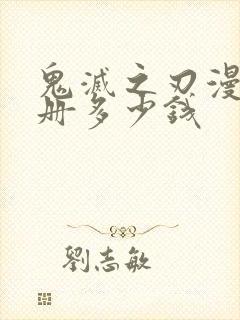 鬼滅之刃漫
冊多少錢
劉志敏